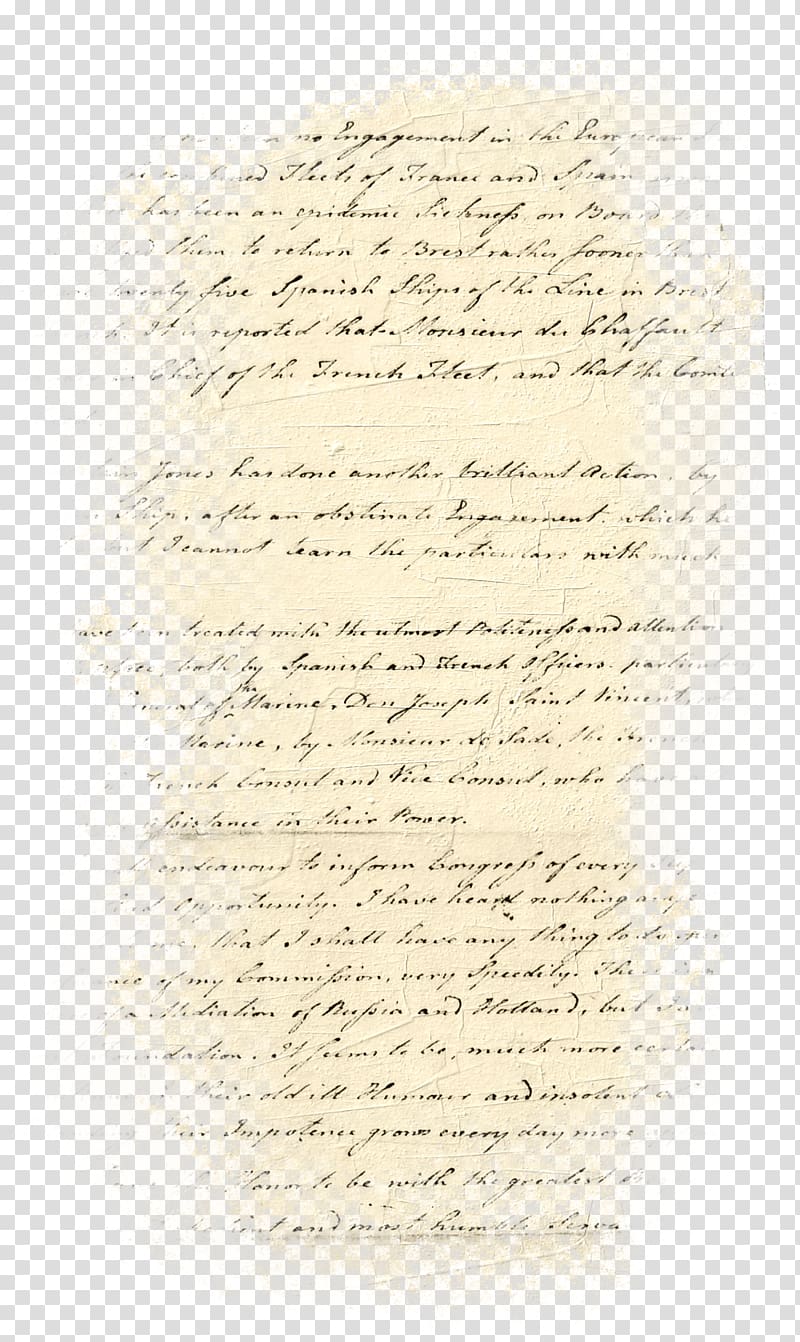 no Engagement in the European
Fleets of France and Spain
has been an epidemic Sickness on Board
them to return to Brest rather sooner than
twenty five Spanish Ships of the Line in Brest
It is reported that Monsieur du Chaffault
Chief of the French Fleet, and that the Comte
Jones has done another brilliant Action, by
Ship, after an obstinate Engagement. which he
I cannot learn the particulars with much
treated with the utmost Politeness and attention
both by Spanish and French Officers. particular
of the Marine, Don Joseph Saint Vincent
Marine, by Monsieur de Sade, the
French Consul and Vice Consul, who have
assistance in their Power.
endeavour to inform Congress of every
Opportunity. I have heard nothing
that I shall have any thing to do
of my Commission, very Speedily. There is
a Mediation of Russia and Holland, but
foundation. It seems to be, much more certain
their old ill Humour and insolent
their Impotence grows every day more
Honor to be with the greatest
and most humble Serva